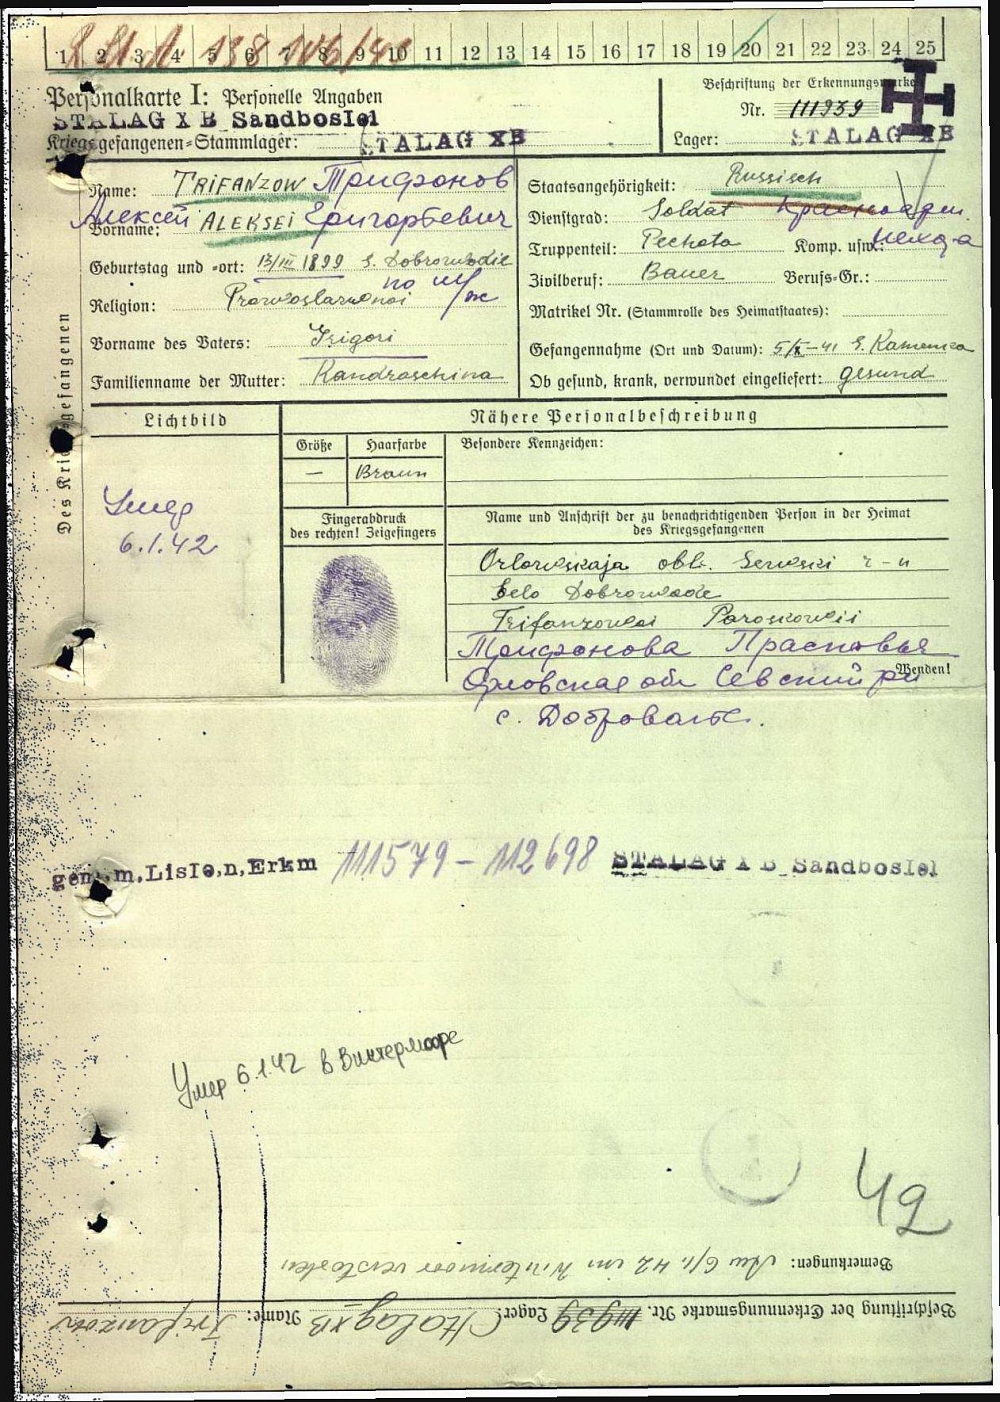 1 2 3 4 5 6 7 8 9 10 11 12 13 14 15 16 17 18 19 20 21 22 23 24 25
Personalkarte I: Personelle Angaben
STALAG X B Sandbostel
Kriegsgefangenen-Stammlager: STALAG XB
Beschriftung der Erkennungsmarke
Nr. 111939
Lager: STALAG XB
Des Kriegsgefangenen
Name: TRIFANZOW Трифонов
Алексей Григорьевич
Vorname: ALEKSEI
Geburtstag und -ort: 13/III 1899 S. Dobrowodie
Religion: Prawoslawnoi
Vorname des Vaters: Grigori
Familienname der Mutter: Kandraschina
Staatsangehörigkeit: Russisch
Dienstgrad: Soldat Красноарм.
Truppenteil: Pechota Komp. usw.: пехота
Zivilberuf: Bauer Berufs-Gr.:
Matrikel Nr. (Stammrolle des Heimatstaates):
Gefangennahme (Ort und Datum): 5/X-41 S. Kamenca
Ob gesund, krank, verwundet eingeliefert: gesund
Lichtbild
Умер
6.1.42
Nähere Personalbeschreibung
Größe Haarfarbe Besondere Kennzeichen:
— Braun
Fingerabdruck
des rechten! Zeigefingers
Name und Anschrift der zu benachrichtigenden Person in der Heimat
des Kriegsgefangenen
Orlowskaja obl. Sewski r-n
Selo Dobrowode
Trifanzowai Paroskowii
Трифонова Прасковья
Wenden!
Орловская обл Севский рн
с. Доброводье.
gem.m.Liste,n,Erkm 111579-112698 STALAG X B Sandbostel
Умер 6.1.42 в Винтермооре
42
Bemerkungen: Am 6/1. 42 im Wintermoor verstorben
Beschriftung der Erkennungsmarke Nr. 111939 Lager: Stalag XB Name: Trifanzow